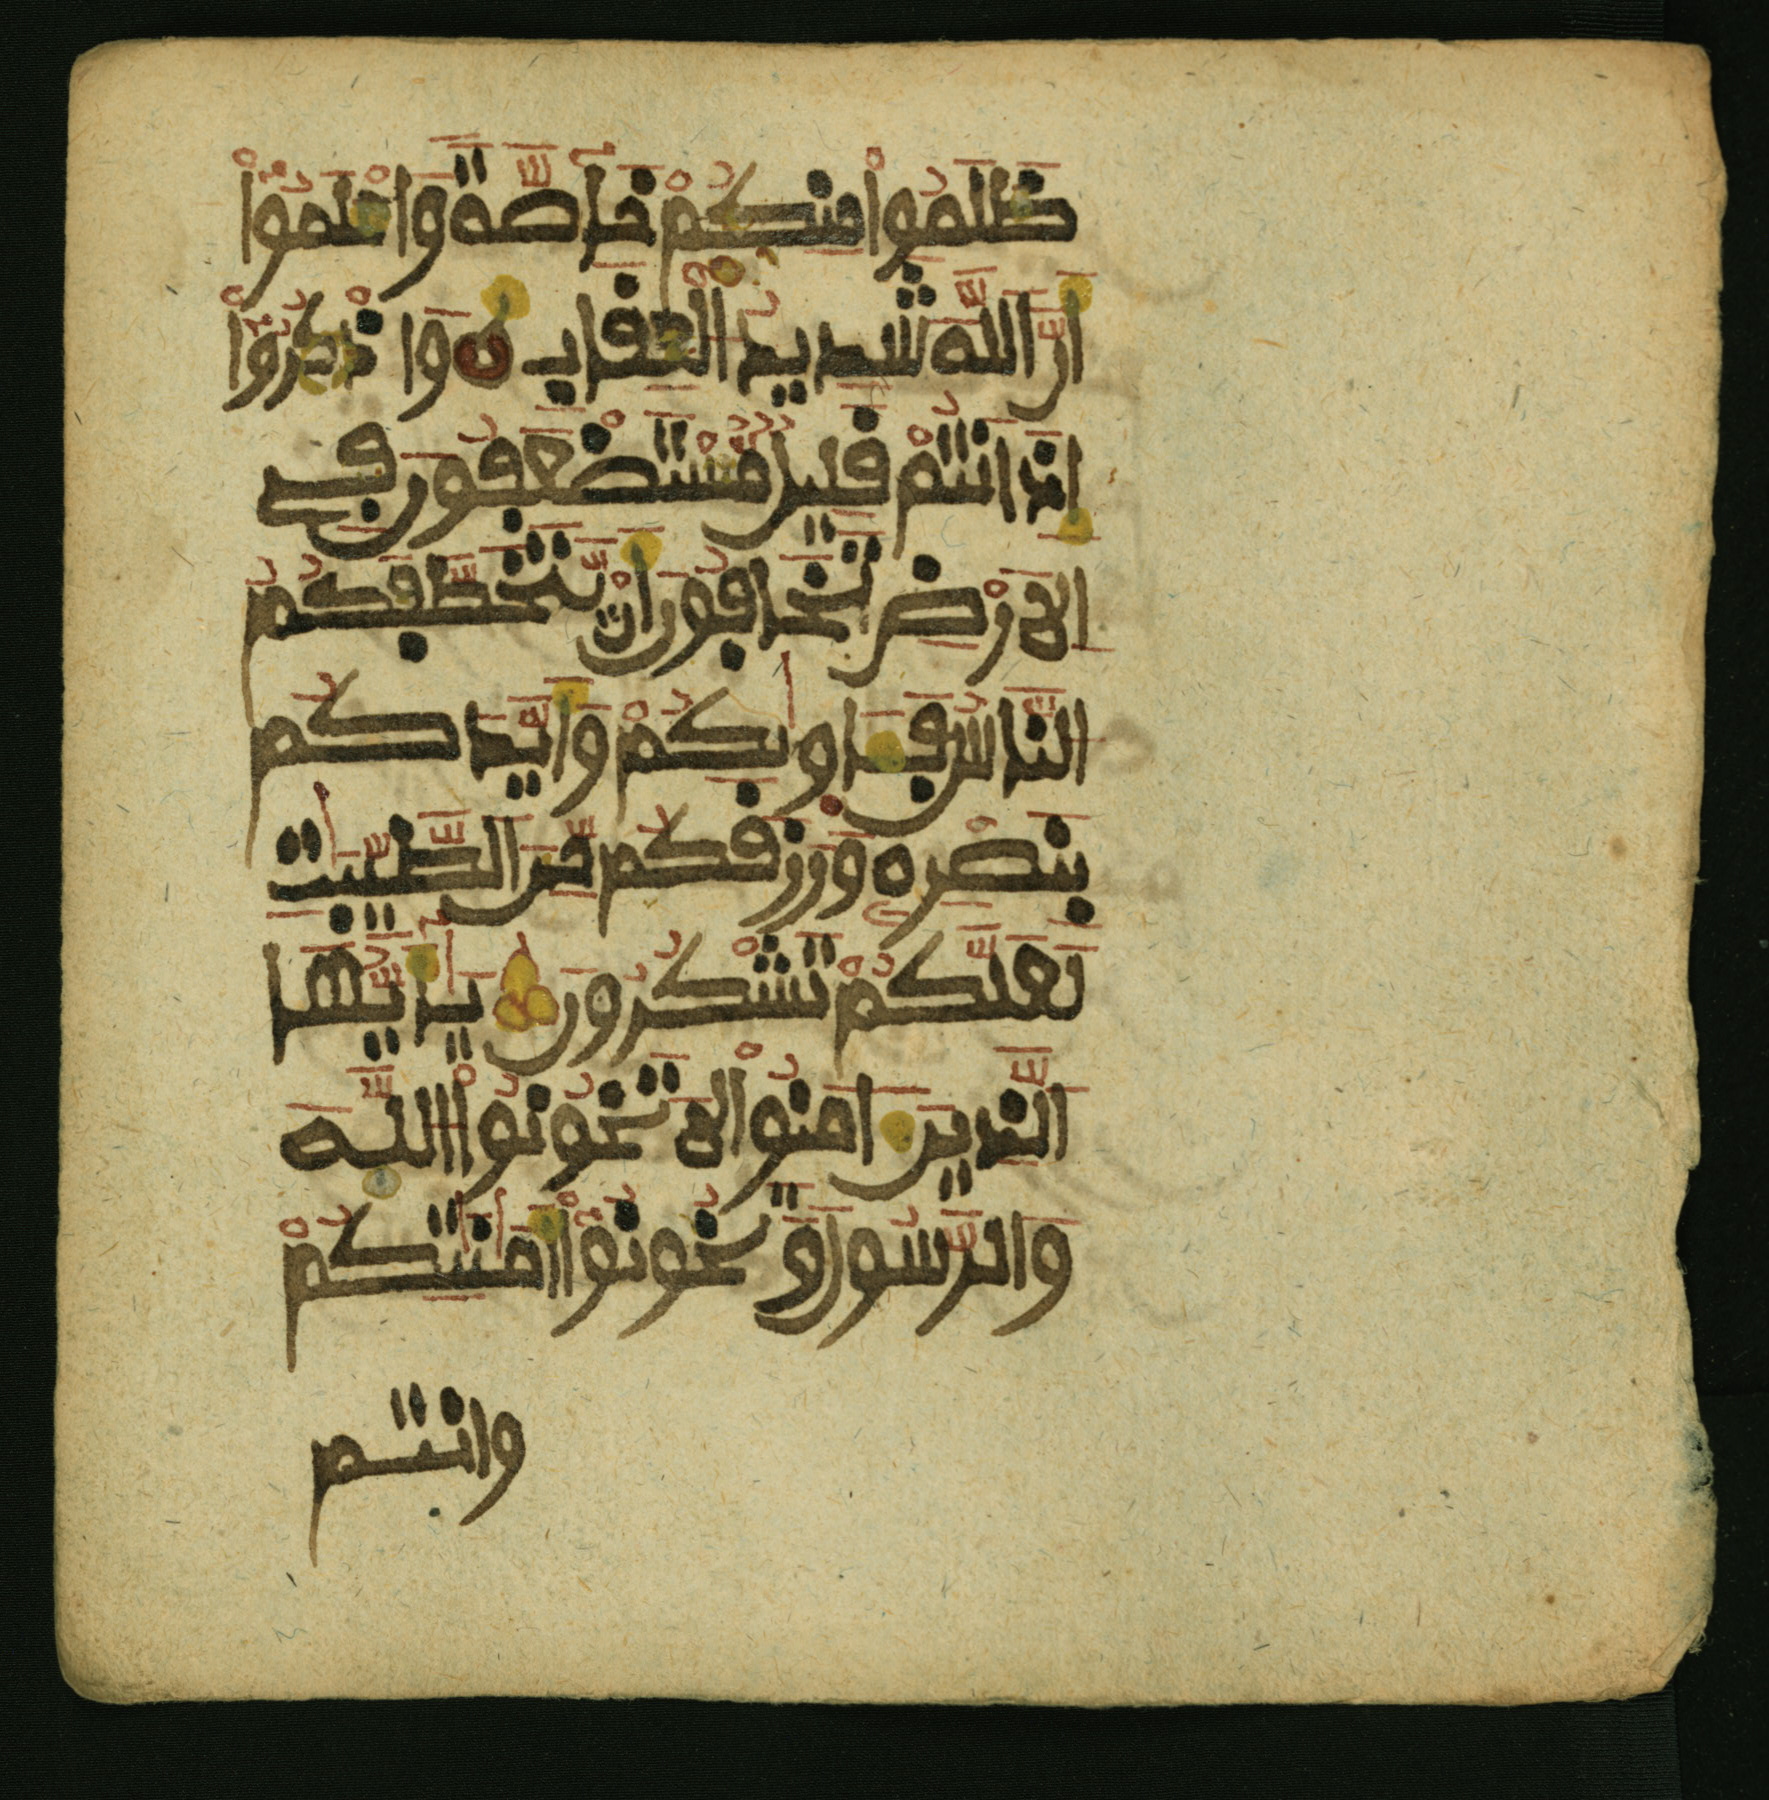 ظَلَمُواْ مِنكُمْ خَآصَّةً وَاعْلَمُوٓاْ
أَنَّ اَللَّهَ شَدِيدُ اَلْعِقَابِ وَاذْكُرُوٓاْ
إِذَ اَنتُمْ قَلِيلٌ مُّسْتَضْعَفُونَ فِے
اِلَارْضِ تَخَافُونَ أَنْ يَّتَخَطَّفَكُمُ
اُلنَّاسُ فَـَٔاوٜىٰكُمْ وَأَيَّدَكُم
بِنَصْرِهِۦ وَرَزَقَكُم مِّنَ اَلطَّيِّبَٰتِ
لَعَلَّكُمْ تَشْكُرُونَ يَٰٓأَيُّهَا
اَلذِينَ ءَامَنُواْ لَا تَخُونُواْ اُللَّهَ
وَالرَّسُولَ وَتَخُونُوٓاْ أَمَٰنَٰتِكُمْ
وانتم